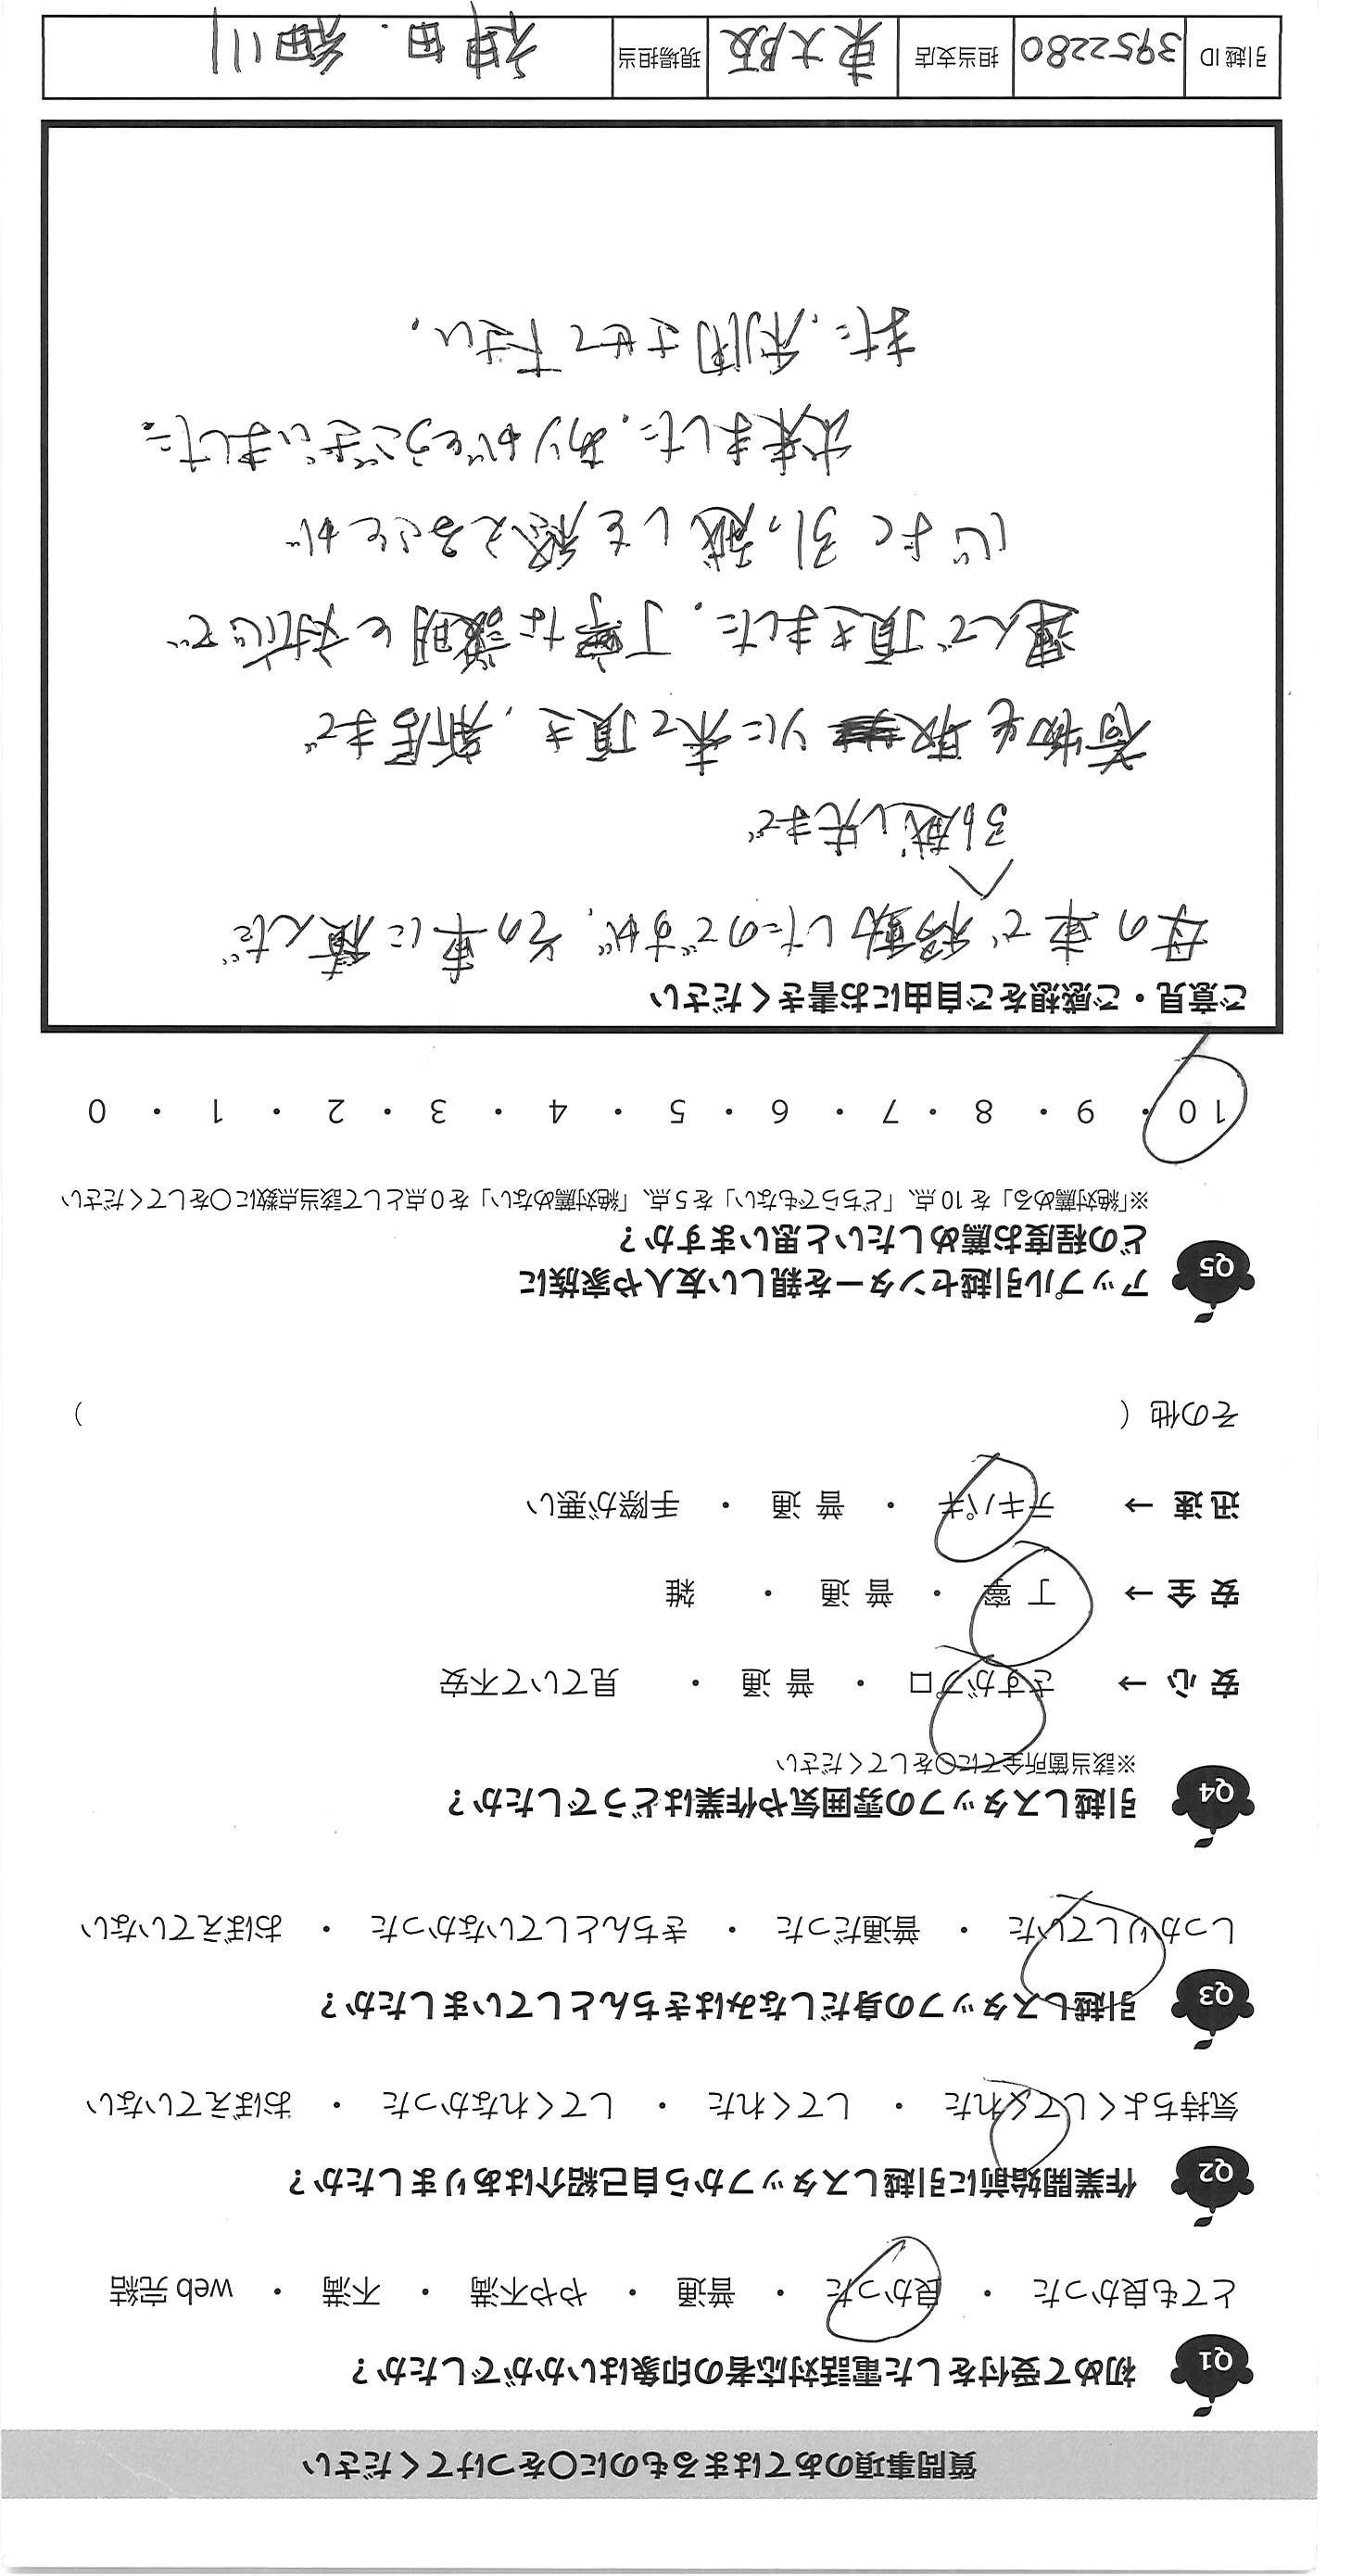 質問事項のあてはまるものに〇をつけてください
Q1 初めて受付をした電話対応者の印象はいかがでしたか？
とても良かった ・ 良かった ・ 普通 ・ やや不満 ・ 不満 ・ web 完結
Q2 作業開始前に引越しスタッフから自己紹介はありましたか？
気持ちよくしてくれた ・ してくれた ・ してくれなかった ・ おぼえていない
Q3 引越しスタッフの身だしなみはきちんとしていましたか？
しっかりしていた ・ 普通だった ・ きちんとしていなかった ・ おぼえていない
Q4 引越しスタッフの雰囲気や作業はどうでしたか？
※該当箇所全てに〇をしてください
安 心 → さすがプロ ・ 普 通 ・ 見ていて不安
安 全 → 丁 寧 ・ 普 通 ・ 雑
迅 速 → テキパキ ・ 普 通 ・ 手際が悪い
その他（ ）
Q5 アップル引越センターを親しい友人や家族に
どの程度お薦めしたいと思いますか？
※「絶対薦める」を 10 点、「どちらでもない」を 5 点、「絶対薦めない」を 0 点として該当点数に〇をしてください
10 ・ 9 ・ 8 ・ 7 ・ 6 ・ 5 ・ 4 ・ 3 ・ 2 ・ 1 ・ 0
ご意見・ご感想をご自由にお書きください
母の車で移動したのですが、その車に積んだ
引越し先まで
荷物を取りに来て頂き、新居まで
運んで頂きました。丁寧な説明と対応で
引っ越しを終えることが
出来ました。ありがとうございました。
また、利用させて下さい。
引越 ID 3952280 担当支店 東大阪 現場担当 神田．細川